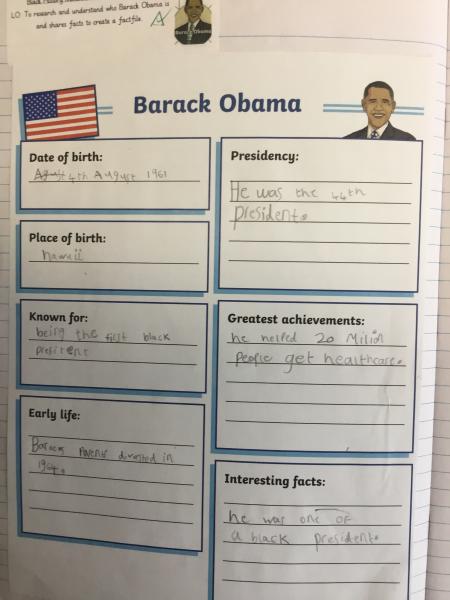 Black History
LO: To research and understand who Barack Obama is
and shares facts to create a factfile.
A
Barack Obama
Barack Obama
Date of birth:
4th August 1961
Place of birth:
hawaii
Known for:
being the first black
presitent
Early life:
Baracks Parents divorsted in
1964.
Presidency:
He was the 44th
president.
Greatest achievements:
he helled 20 Milion
people get healthcare.
Interesting facts:
he was one of
a black president.